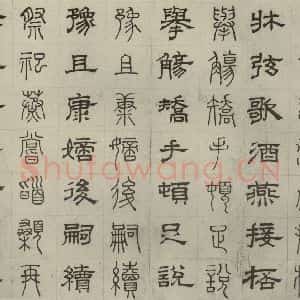 牀弦歌酒燕接桮
舉觴矯手頓足說
舉觴矯手頓足說
豫且康嫡後嗣續
豫且康嫡後嗣續
祭祀蒸嘗䭫顙再
Shufawang.CN